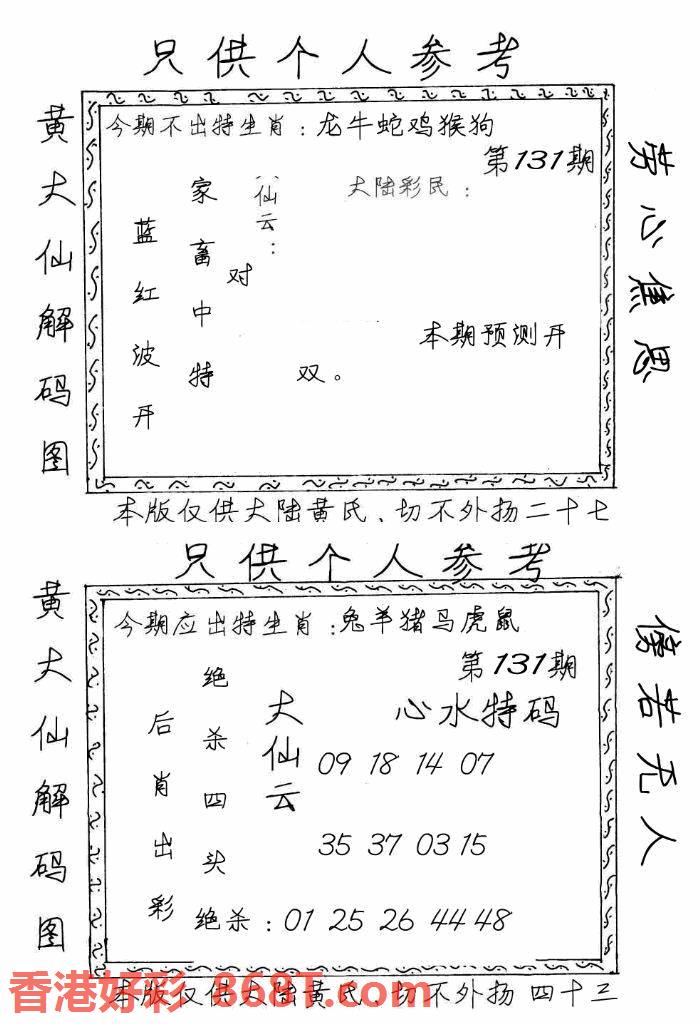 只供个人参考
黄大仙解码图
今期不出特生肖：龙牛蛇鸡猴狗
第131期
大陆彩民：
仙云：
对
双。
家畜中特
蓝红波开
本期预测开
劳心焦思
本版仅供大陆黄氏、切不外扬二十七
只供个人参考
黄大仙解码图
今期应出特生肖：兔羊猪马虎鼠
第131期
绝杀四头
后肖出彩
大仙云
心水特码
09 18 14 07
35 37 03 15
绝杀：01 25 26 44 48
傍若无人
本版仅供大陆黄氏、切不外扬 四十三
香港好彩 868T.com